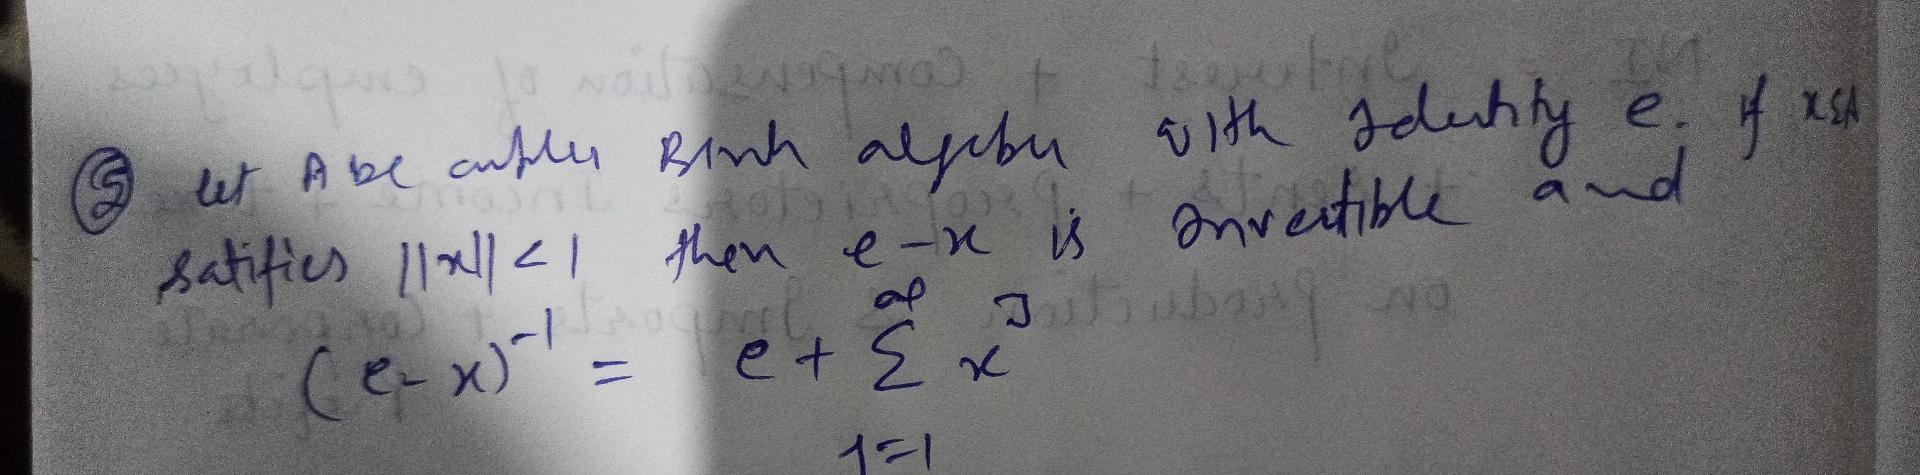 ⑤ let A be complex Banach algebra with Identity e. if x∈A
satifies ||x|| < 1 then e-x is Invertible and
(e-x)^{-1} = e + \sum_{J=1}^{∞} x^{J}